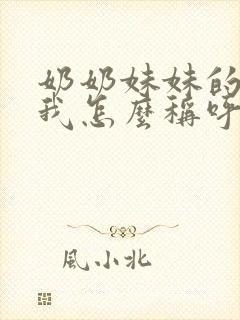 奶奶妹妹的
我怎麼稱呼
風小北